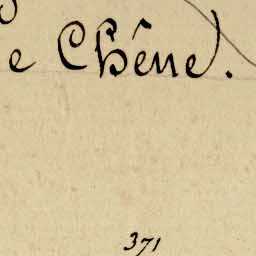 e Chêne.
371